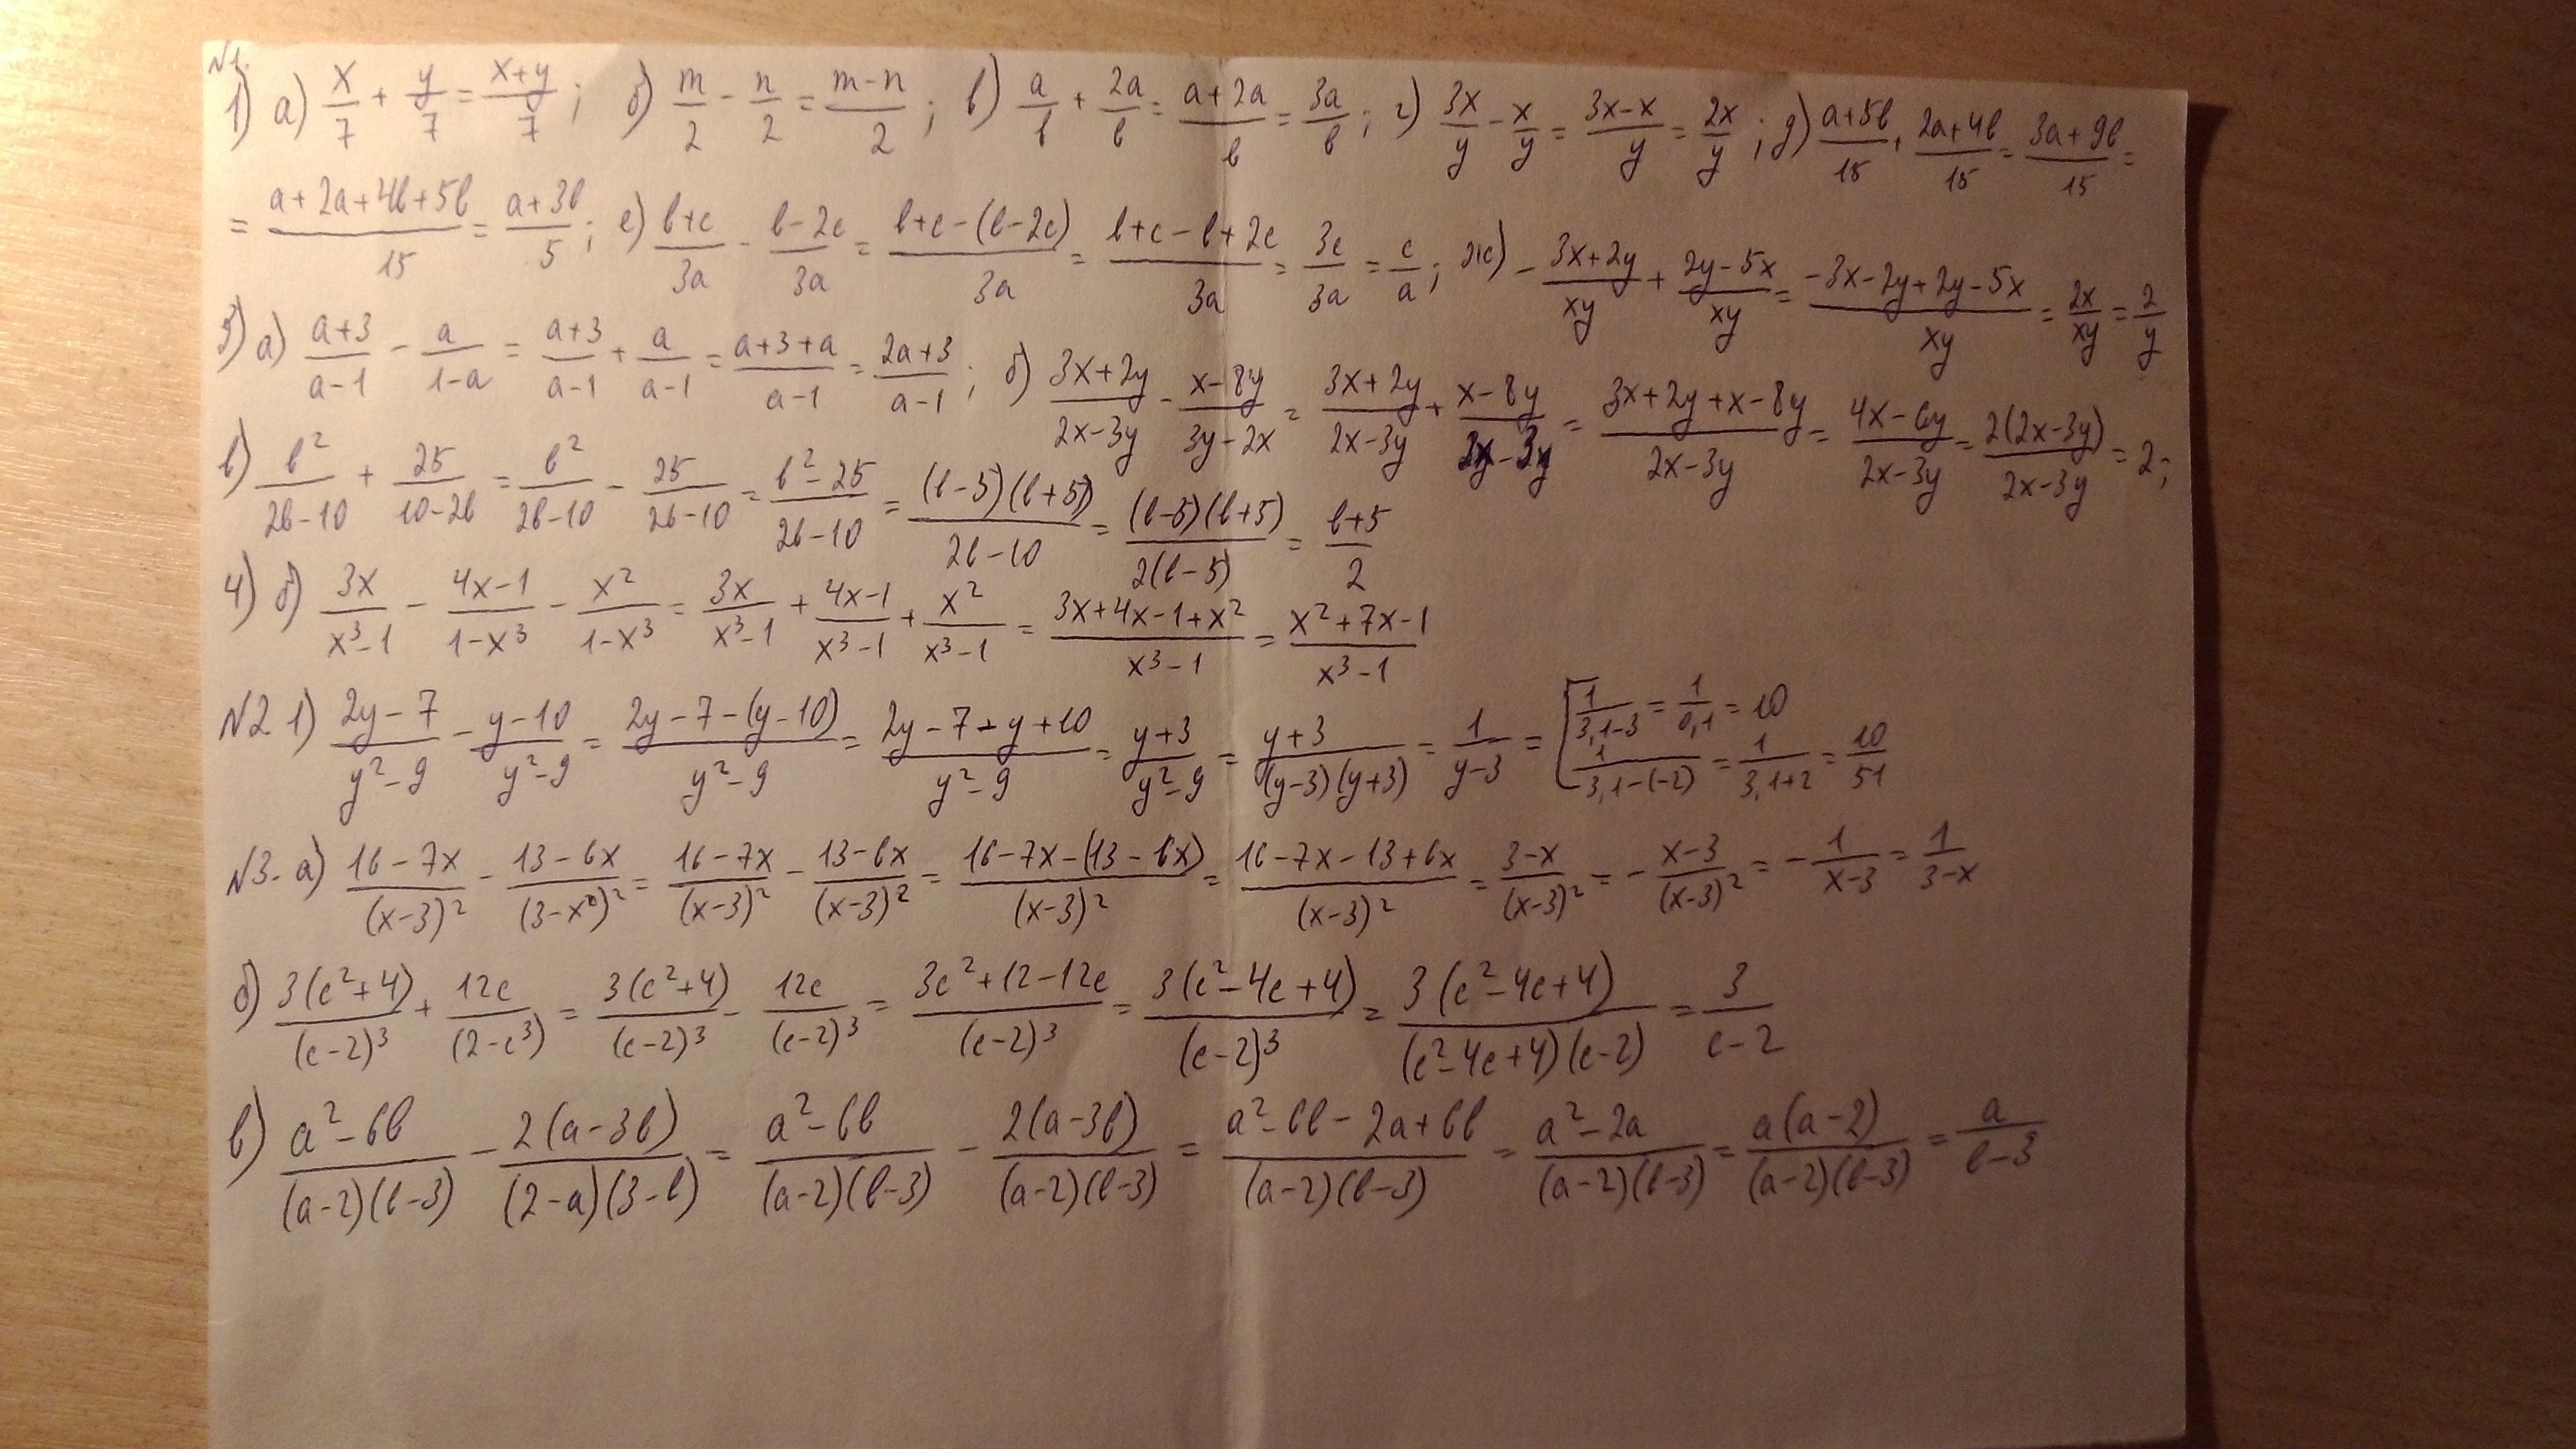 №1.
1) а) x/7 + y/7 = (x+y)/7; б) m/2 - n/2 = (m-n)/2; в) a/b + 2a/b = (a+2a)/b = 3a/b; г) 3x/y - x/y = (3x-x)/y = 2x/y; д) (a+5b)/15 + (2a+4b)/15 = (3a+9b)/15 =
= (a+2a+4b+5b)/15 = (a+3b)/5; е) (b+c)/3a - (b-2c)/3a = (b+c-(b-2c))/3a = (b+c-b+2c)/3a = 3c/3a = c/a; ж) - (3x+2y)/xy + (2y-5x)/xy = (-3x-2y+2y-5x)/xy = 2x/xy = 2/y
3) а) (a+3)/(a-1) - a/(1-a) = (a+3)/(a-1) + a/(a-1) = (a+3+a)/(a-1) = (2a+3)/(a-1); б) (3x+2y)/(2x-3y) - (x-8y)/(3y-2x) = (3x+2y)/(2x-3y) + (x-8y)/(2x-3y) = (3x+2y+x-8y)/(2x-3y) = (4x-6y)/(2x-3y) = 2(2x-3y)/(2x-3y) = 2;
в) b²/(2b-10) + 25/(10-2b) = b²/(2b-10) - 25/(2b-10) = (b²-25)/(2b-10) = (b-5)(b+5)/(2b-10) = (b-5)(b+5)/2(b-5) = (b+5)/2
4) б) 3x/(x³-1) - (4x-1)/(1-x³) - x²/(1-x³) = 3x/(x³-1) + (4x-1)/(x³-1) + x²/(x³-1) = (3x+4x-1+x²)/(x³-1) = (x²+7x-1)/(x³-1)
№2 1) (2y-7)/(y²-9) - (y-10)/(y²-9) = (2y-7-(y-10))/(y²-9) = (2y-7-y+10)/(y²-9) = (y+3)/(y²-9) = (y+3)/(y-3)(y+3) = 1/(y-3) = [ 1/(3,1-3) = 1/0,1 = 10
1/(3,1-(-2)) = 1/(3,1+2) = 10/51
№3. а) (16-7x)/(x-3)² - (13-6x)/(3-x)² = (16-7x)/(x-3)² - (13-6x)/(x-3)² = (16-7x-(13-6x))/(x-3)² = (16-7x-13+6x)/(x-3)² = (3-x)/(x-3)² = - (x-3)/(x-3)² = - 1/(x-3) = 1/(3-x)
б) 3(c²+4)/(c-2)³ + 12c/(2-c³) = 3(c²+4)/(c-2)³ - 12c/(c-2)³ = (3c²+12-12c)/(c-2)³ = 3(c²-4c+4)/(c-2)³ = 3(c²-4c+4)/(c²-4c+4)(c-2) = 3/(c-2)
в) (a²-6b)/(a-2)(b-3) - 2(a-3b)/(2-a)(3-b) = (a²-6b)/(a-2)(b-3) - 2(a-3b)/(a-2)(b-3) = (a²-6b-2a+6b)/(a-2)(b-3) = (a²-2a)/(a-2)(b-3) = a(a-2)/(a-2)(b-3) = a/(b-3)